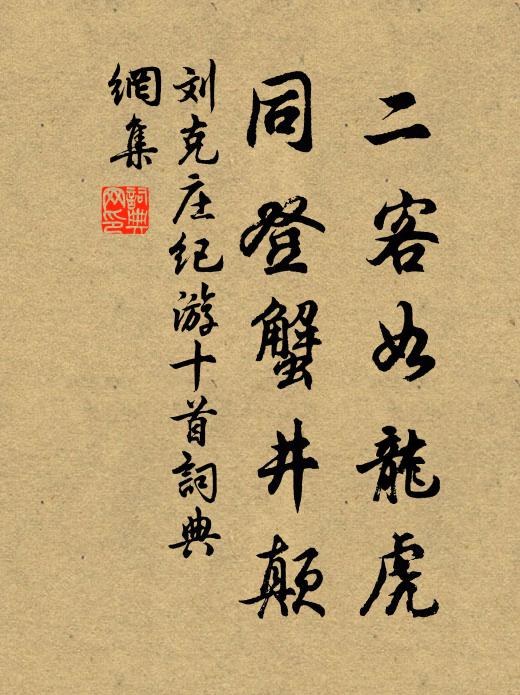 二客如龍虎
同登蟹井顛
刘克庄纪游十首詞典
網集
詞典网印